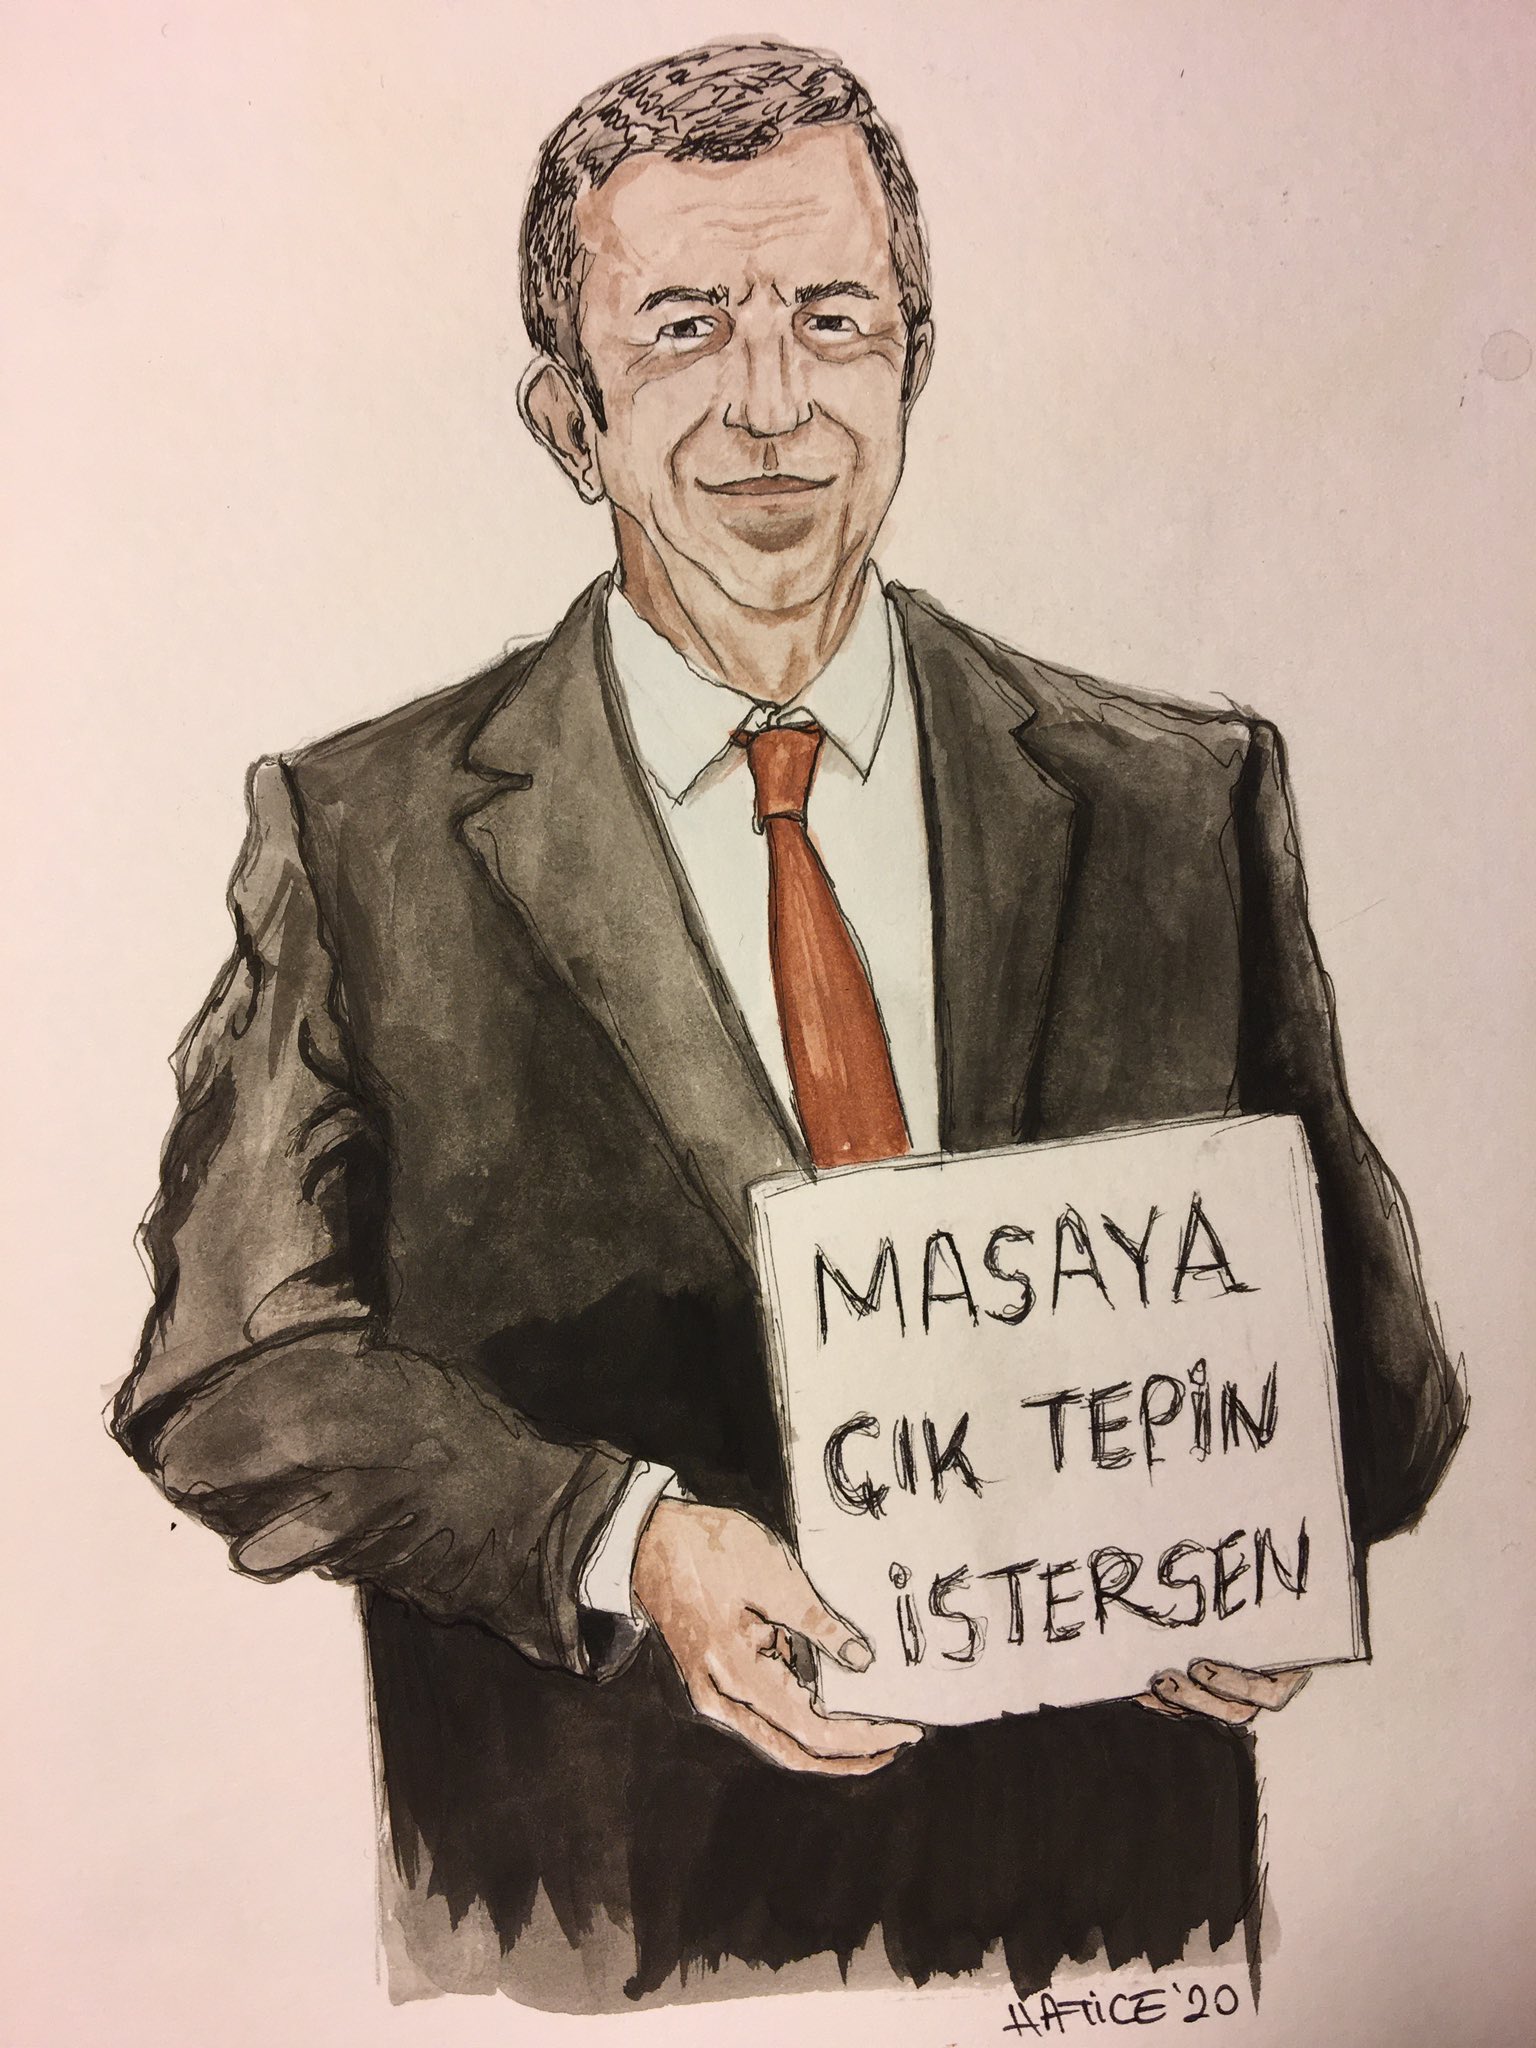 MASAYA
ÇIK TEPİN
İSTERSEN
HAFTİCE '20